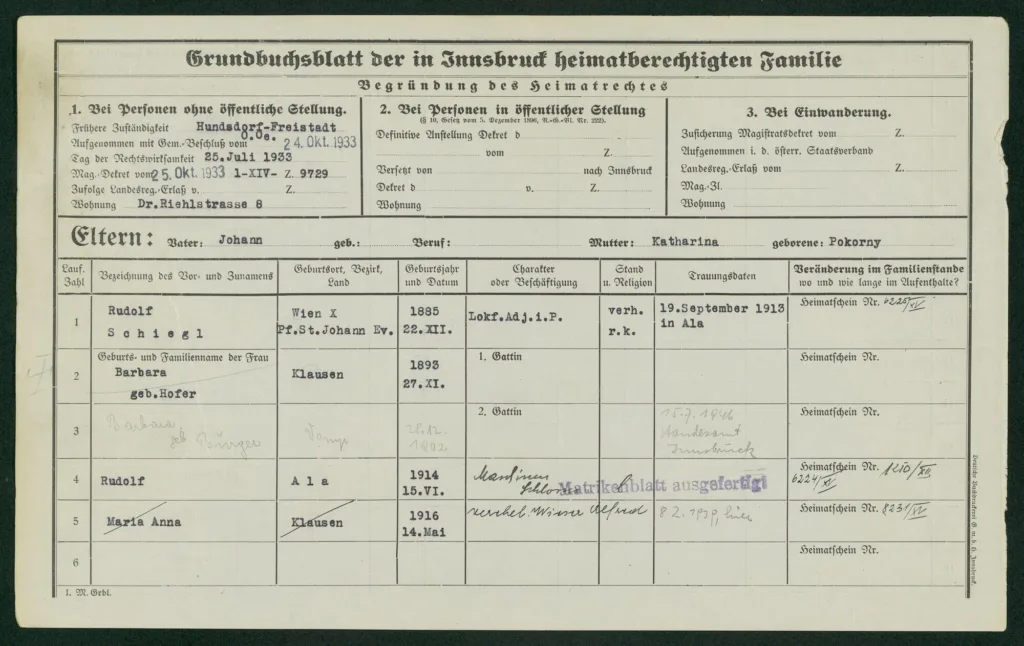 Grundbuchsblatt der in Innsbruck heimatberechtigten Familie
Begründung des Heimatrechtes
1. Bei Personen ohne öffentliche Stellung.
Frühere Zuständigkeit Hundsdorf-Freistadt
O.Oe.
Aufgenommen mit Gem.-Beschluß vom 24. Okt. 1933
Tag der Rechtswirksamkeit 25.Juli 1933
Mag.-Dekret vom 25. Okt. 1933 1-XIV- Z. 9729
Zufolge Landesreg.-Erlaß v. Z.
Wohnung Dr.Riehlstrasse 8
2. Bei Personen in öffentlicher Stellung
(§ 10, Gesetz vom 5. Dezember 1896, R.-G.-Bl. Nr. 222).
Definitive Anstellung Dekret d
vom Z.
Versetzt von nach Innsbruck
Dekret d v. Z.
Wohnung
3. Bei Einwanderung.
Zusicherung Magistratsdekret vom Z.
Aufgenommen i. d. österr. Staatsverband
Landesreg.-Erlaß vom Z.
Mag.-Zl.
Wohnung
Eltern: Vater: Johann geb.: Beruf: Mutter: Katharina geborene: Pokorny
Lauf. Zahl
Bezeichnung des Vor- und Zunamens
Geburtsort, Bezirk, Land
Geburtsjahr und Datum
Charakter oder Beschäftigung
Stand u. Religion
Trauungsdaten
Veränderung im Familienstande
wo und wie lange im Aufenthalte?
1
Rudolf
Schiegl
Wien X
Pf.St.Johann Ev.
1885
22.XII.
Lokf.Adj.i.P.
verh.
r.k.
19.September 1913
in Ala
Heimatschein Nr. 6225/XV
2
Geburts- und Familienname der Frau
Barbara
geb.Hofer
Klausen
1893
27.XI.
1. Gattin
Heimatschein Nr.
3
Barbara
geb Bürger
1902
2. Gattin
15.7.
Standesamt
Innsbruck
Heimatschein Nr.
4
Rudolf
Ala
1914
15.VI.
Maschinen
Matrikenblatt ausgefertigt
Heimatschein Nr. 1210/XII
6224/XV
5
Maria Anna
Klausen
1916
14.Mai
verehel. Wieser Alfred
8 2. 1939
Heimatschein Nr. 8231/XV
6
Heimatschein Nr.
1. M. Grbl.
Deutsche Buchdruckerei G. m. b. H. Innsbruck.